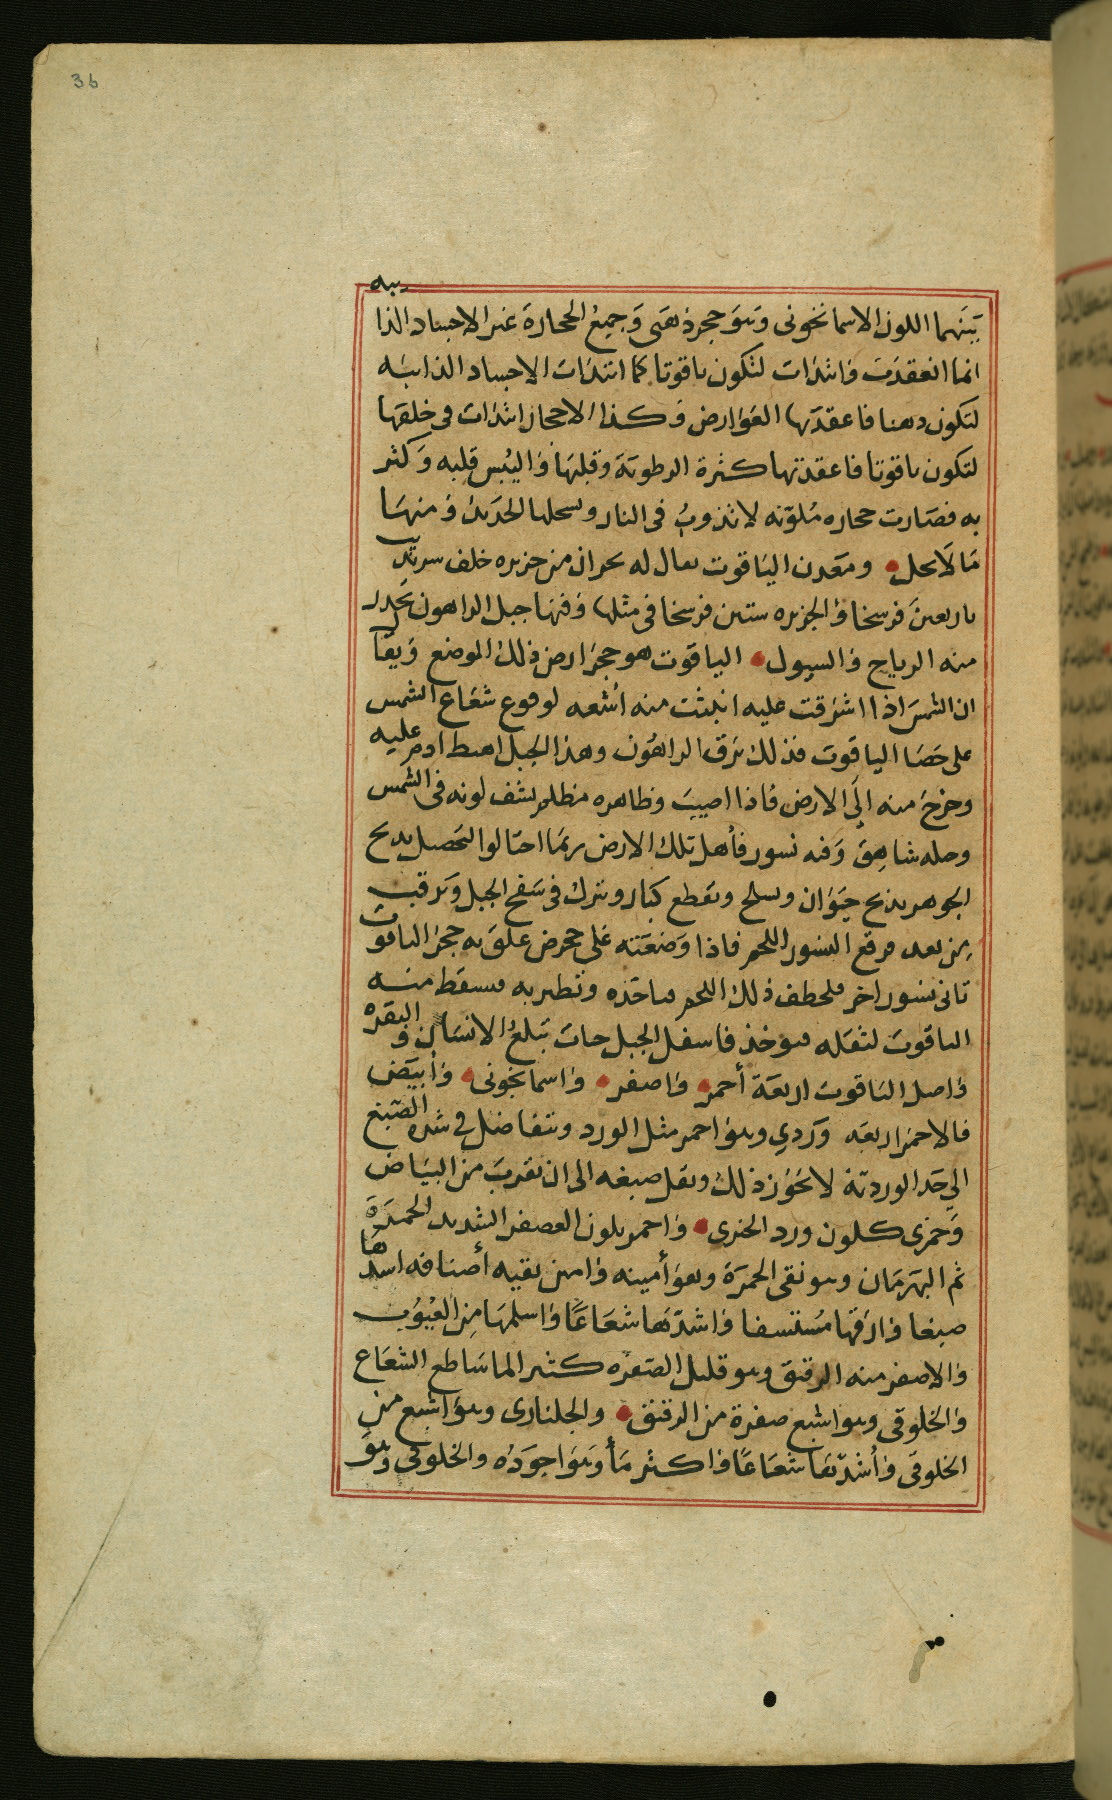 3b
بينهما اللون الاسمانجونى وهو حجر ذهبى وجميع الحجارة غير الاجساد الذا
يبه
انما انعقدت وابتدات لتكون ياقوتا كما ابتدات الاجساد الذايبه
لتكون دهنا فاعقدتها العوارض وكذا الاحجار ابتدات فى خلقها
لتكون ياقوتا فاعقدتها كثرة الرطوبة وقلتها واليبس قلبه وكثر
به فصارت حجاره ملونه لا تذوب فى النار ويسحلها الحديد ومنها
ما لا يحل ومعدن الياقوت يقال له بحران من جزيره خلف سرنديب
باربعين فرسخا والجزيره ستين فرسخا فى مثلها وفيها جبل الراهون يحدر
منه الرياح والسيول الياقوت هو حجر ارض ذلك الموضع ويقا
ان الشمس اذا اشرقت عليه انبثت منه اشعه لوقوع شعاع الشمس
على حصا الياقوت فذلك برق الراهون وهذا الجبل اهبط ادم عليه
وخرج منه الى الارض فاذا اصيب وظاهره مظلم يشف لونه فى الشمس
شاهق وفيه نسور فاهل تلك الارض ربما احتالوا
الجوهر بذبح حيوان ويسلخ ويقطع كبار ويترك فى سفح الجبل ويرقب
من بعد فرفع النسور اللحم فاذا وضعته على علق به حجر الياقوت
تاتى نسور اخر فلخطف ذلك اللحم فياخذه وتطير به فيسقط منه
الياقوت لثقله فيوخذ فاسفل الجبل حيات تبلع الانسان والبقره
واصل الياقوت اربعة احمر واصفر واسمانجونى وابيض
فالاحمر اربعه وردي وهو احمر مثل الورد ويتفاضل فى شده الصبغ
الى حد الوردية لا يجوز ذلك ويقل صبغه الى ان يقرب من البياض
وخمرى كلون ورد الخيرى واحمر بلون العصفر الشديد الحمرة
ثم البهرمان وهو نقى الحمرة وهو اثمنه وابين بقيه اصنافه اشدها
صبغا وارقها مستشفا واشدها شعاعا واسلمها من العيوب
والاصفر منه الرقيق وهو قليل الصفره كثير الما ساطع الشعاع
والخلوقى وهو اشبع صفرة من الرقيق والجلنارى وهو اشبع من
الخلوقى واشدها شعاعا واكثر ما وهو اجوده والخلوقى وهو